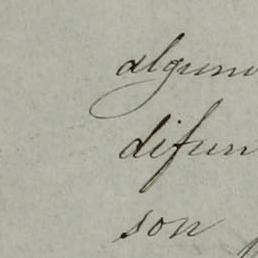 algun
difun
son